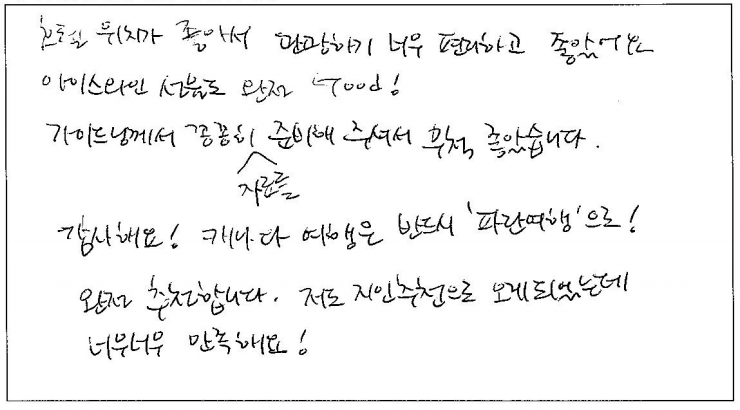 호텔 위치가 좋아서 관광하기 너무 편리하고 좋았어요
아이스와인 선물도 완전 Good!
가이드님께서 꼼꼼히 준비해 주셔서 무척 좋았습니다.
자료를
감사해요! 캐나다 여행은 반드시 '파란여행'으로!
완전 추천합니다. 저도 지인추천으로 오게되었는데
너무너무 만족해요!